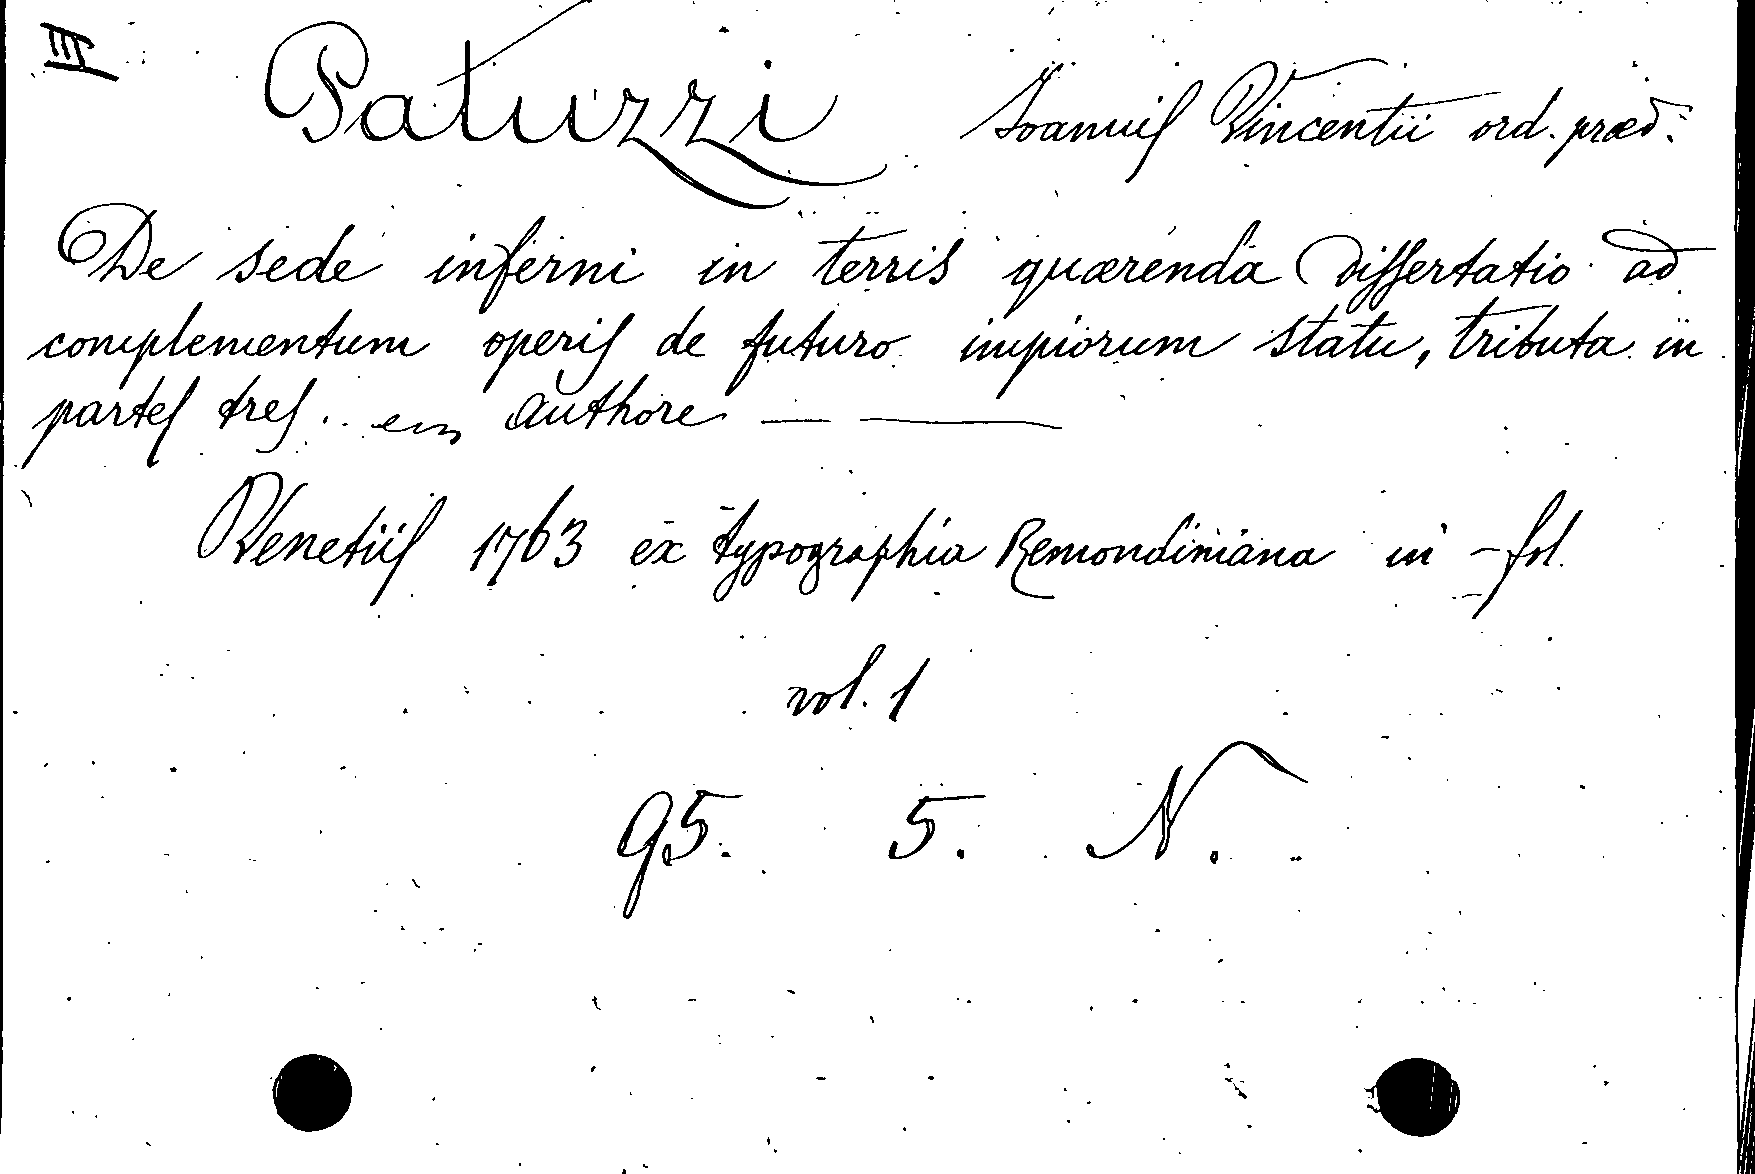 III Patuzzi Joannis Vincentii ord. præd.
De sede inferni in terris quærenda Dissertatio ad
complementum operis de futuro impiorum statu, tributa in
partes tres. authore — —
Venetiis 1763 ex typographia Remondiniana in - fol.
vol. 1
95. 5. N.